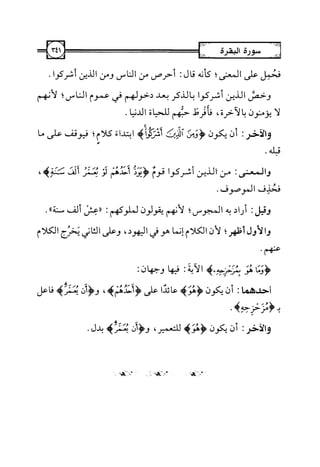 سورة البقرة
٣٤١
فحُمِل على المعنى؛ كأنه قال: أحرص من الناس ومن الذين أشركوا.
وخصَّ الذين أشركوا بالذكر بعد دخولهم في عموم الناس؛ لأنهم
لا يؤمنون بالآخرة، فأَفْرَطَ حبُّهم للحياة الدنيا.
والآخر: أن يكون ﴿وَمِنَ ٱلَّذِينَ أَشْرَكُوا۟﴾ ابتداءَ كلامٍ؛ فيوقف على ما
قبله.
والمعنى: من الذين أشركوا قومٌ ﴿يَوَدُّ أَحَدُهُمْ لَوْ يُعَمَّرُ أَلْفَ سَنَةٍ﴾،
فحُذِف الموصوف.
وقيل: أراد به المجوس؛ لأنهم يقولون لملوكهم: «عِشْ ألف سنة».
والأول أظهر؛ لأن الكلام إنما هو في اليهود، وعلى الثاني يَخرُج الكلام
عنهم.
﴿وَمَا هُوَ بِمُزَحْزِحِهِ﴾ الآيةَ: فيها وجهان:
احدهما: أن يكون ﴿هُوَ﴾ عائدًا على ﴿أَحَدُهُمْ﴾، و﴿أَن يُعَمَّرَ﴾ فاعل
بـ ﴿مُزَحْزِحِهِ﴾.
والآخر: أن يكون ﴿هُوَ﴾ للتعمير، و﴿أَن يُعَمَّرَ﴾ بدل.